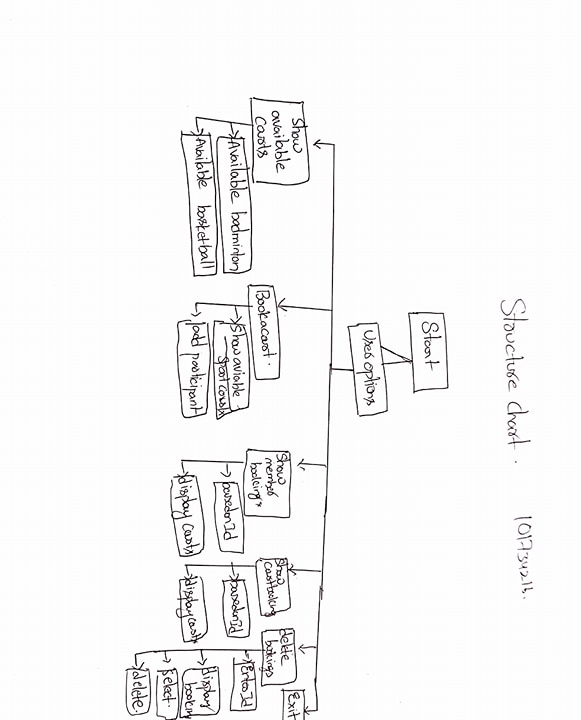 Structure chart.
101734216.
Start
User options
Show
available
Courts
Available badminton
Available basketball
Book a court.
Show avilable
Sport courts
add participant
Show
member
bookings
based on Id
display courts
Show
court booking
based on Id
display courts
delete
bookings
Enter Id
display
booking
select.
delete.
Exit